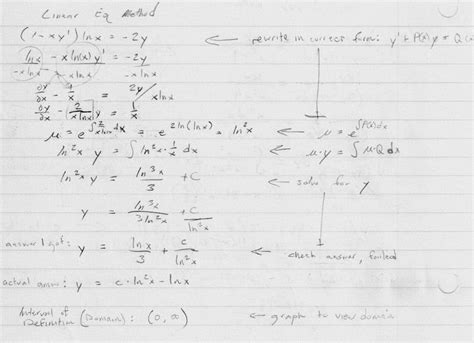 Linear Eq Method
(1-xy') ln x = -2y ← rewrite in correct form: y' + P(x)y = Q(x)
ln x - x ln(x) y' = -2y
-x ln x -x ln x -x ln x
∂y/∂x - 1/x = 2y/x ln x
∂y/∂x - [2/x ln x] y = 1/x
μ = e^∫2/x ln x dx = e^2 ln(ln x) = ln²x ← μ = e^∫P(x)dx
ln²x y = ∫ ln²x · 1/x dx ← μ·y = ∫ μ·Q dx
ln²x y = ln³x/3 + C ← solve for y
y = ln³x/3 ln²x + C/ln²x
answer I got: y = ln x/3 + C/ln²x ← check answer, failed
actual answ: y = c·ln²x - ln x
Interval of Definition (Domain): (0, ∞) ← graph to view domain